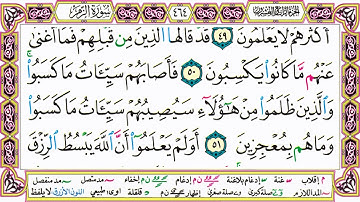 سورة الزمر ٤٦٤ الجزء الرابع والعشرون
أَكْثَرَهُمْ لَا يَعْلَمُونَ ٤٩ قَدْ قَالَهَا الَّذِينَ مِن قَبْلِهِمْ فَمَا أَغْنَىٰ
عَنْهُم مَّا كَانُوا يَكْسِبُونَ ٥٠ فَأَصَابَهُمْ سَيِّئَاتُ مَا كَسَبُوا ۚ
وَالَّذِينَ ظَلَمُوا مِنْ هَٰؤُلَاءِ سَيُصِيبُهُمْ سَيِّئَاتُ مَا كَسَبُوا
وَمَا هُم بِمُعْجِزِينَ ٥١ أَوَلَمْ يَعْلَمُوا أَنَّ اللَّهَ يَبْسُطُ الرِّزْقَ